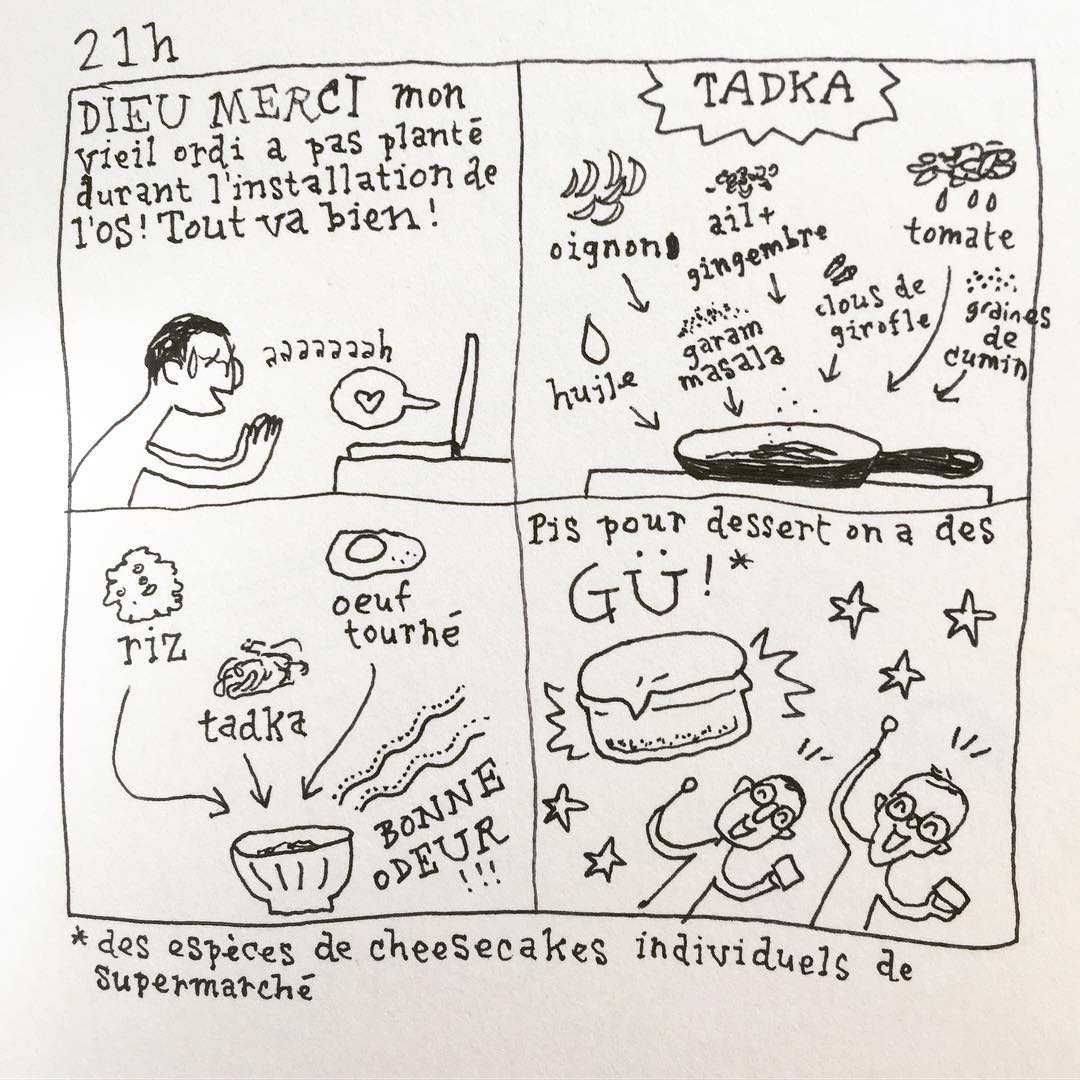 21h
DIEU MERCI mon
vieil ordi a pas planté
durant l'installation de
l'os! Tout va bien!
aaaaaaah
TADKA
oignons
ail+
gingembre
tomate
huile
garam
masala
clous de
girofle
graines
de
cumin
riz
oeuf
tourné
tadka
BONNE
ODEUR
!!!
Pis pour dessert on a des
GÜ!*
* des espèces de cheesecakes individuels de
supermarché